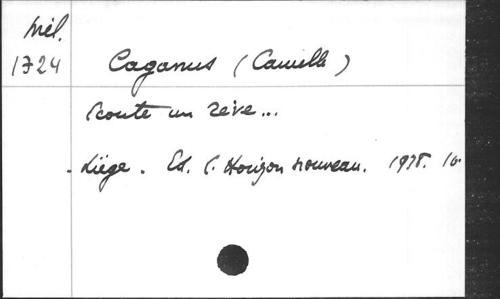 Mél.
1724
Caganus (Camille)
Écoute un rêve...
Liège. Ed. l'Horizon nouveau. 1938. 16°